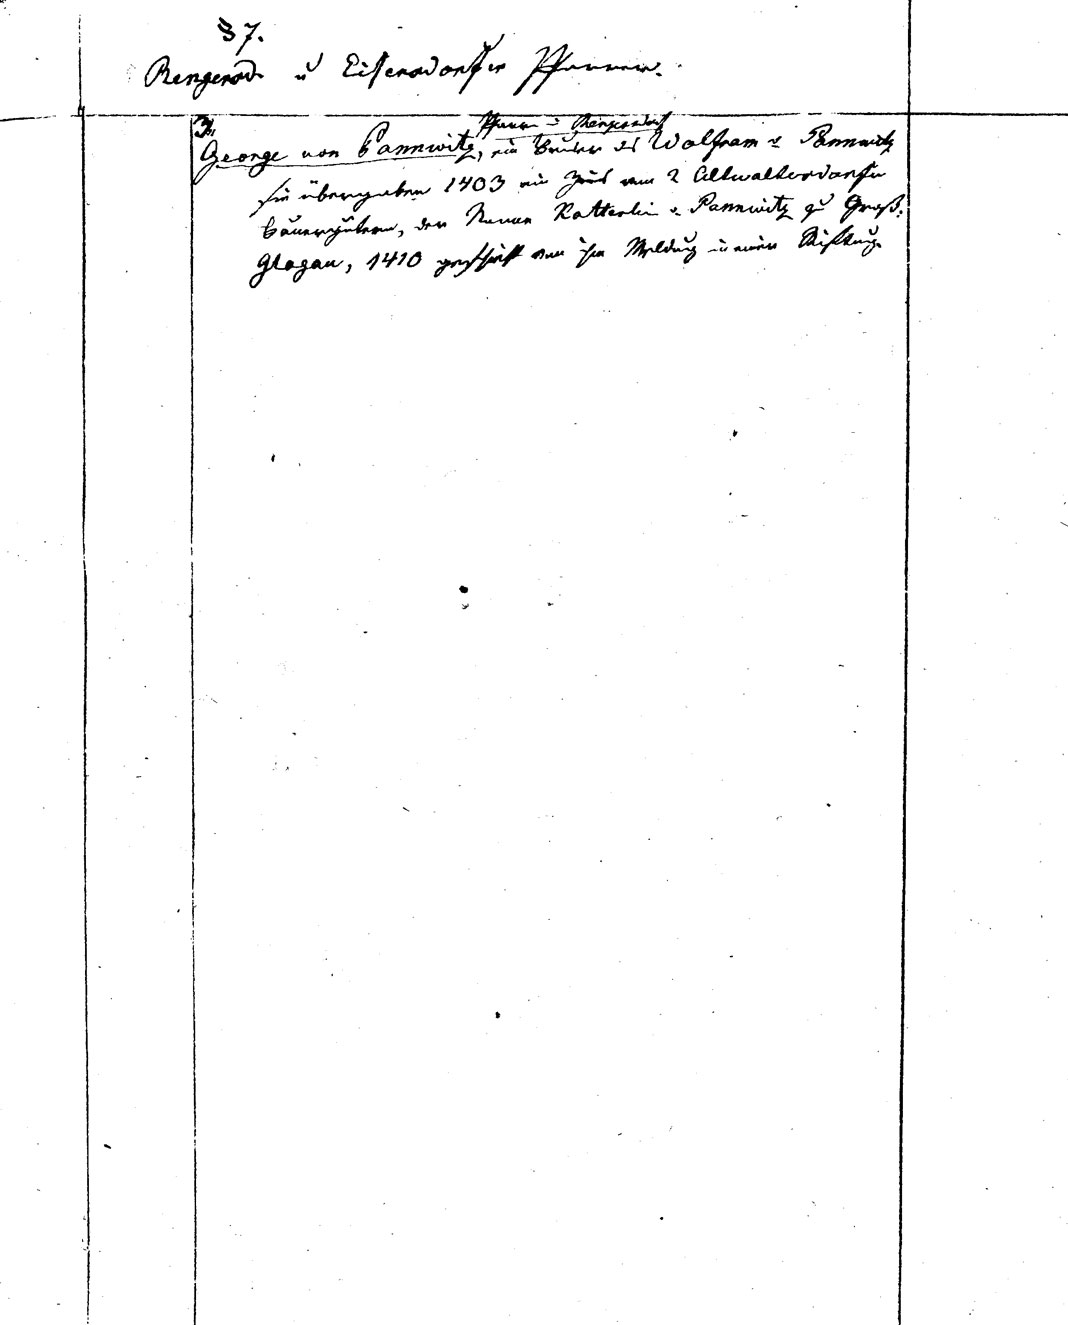 § 7.
Rengersd. u Eisersdorfer Pfarrer.
3.
Pfarrer in Rengersdorf
George von Pannwitz, ein Bruder des Wolfram v Pannwitz
sie übergaben 1403 ein Zins von 2 Altwaltersdorfer
Bauergütern, der Nonne Katterlin v. Pannwitz zu Groß:
Glogau, 1410 geschieht von ihm Meldung in einer Stiftung.